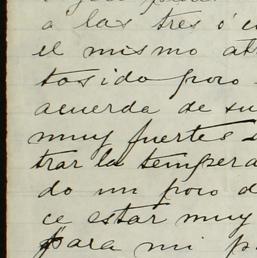 a las tres ó c
el mismo at
tosido poco
acuerda de su
muy fuertes s
trar la tempera
do un poco d
ce estar muy
para mi p